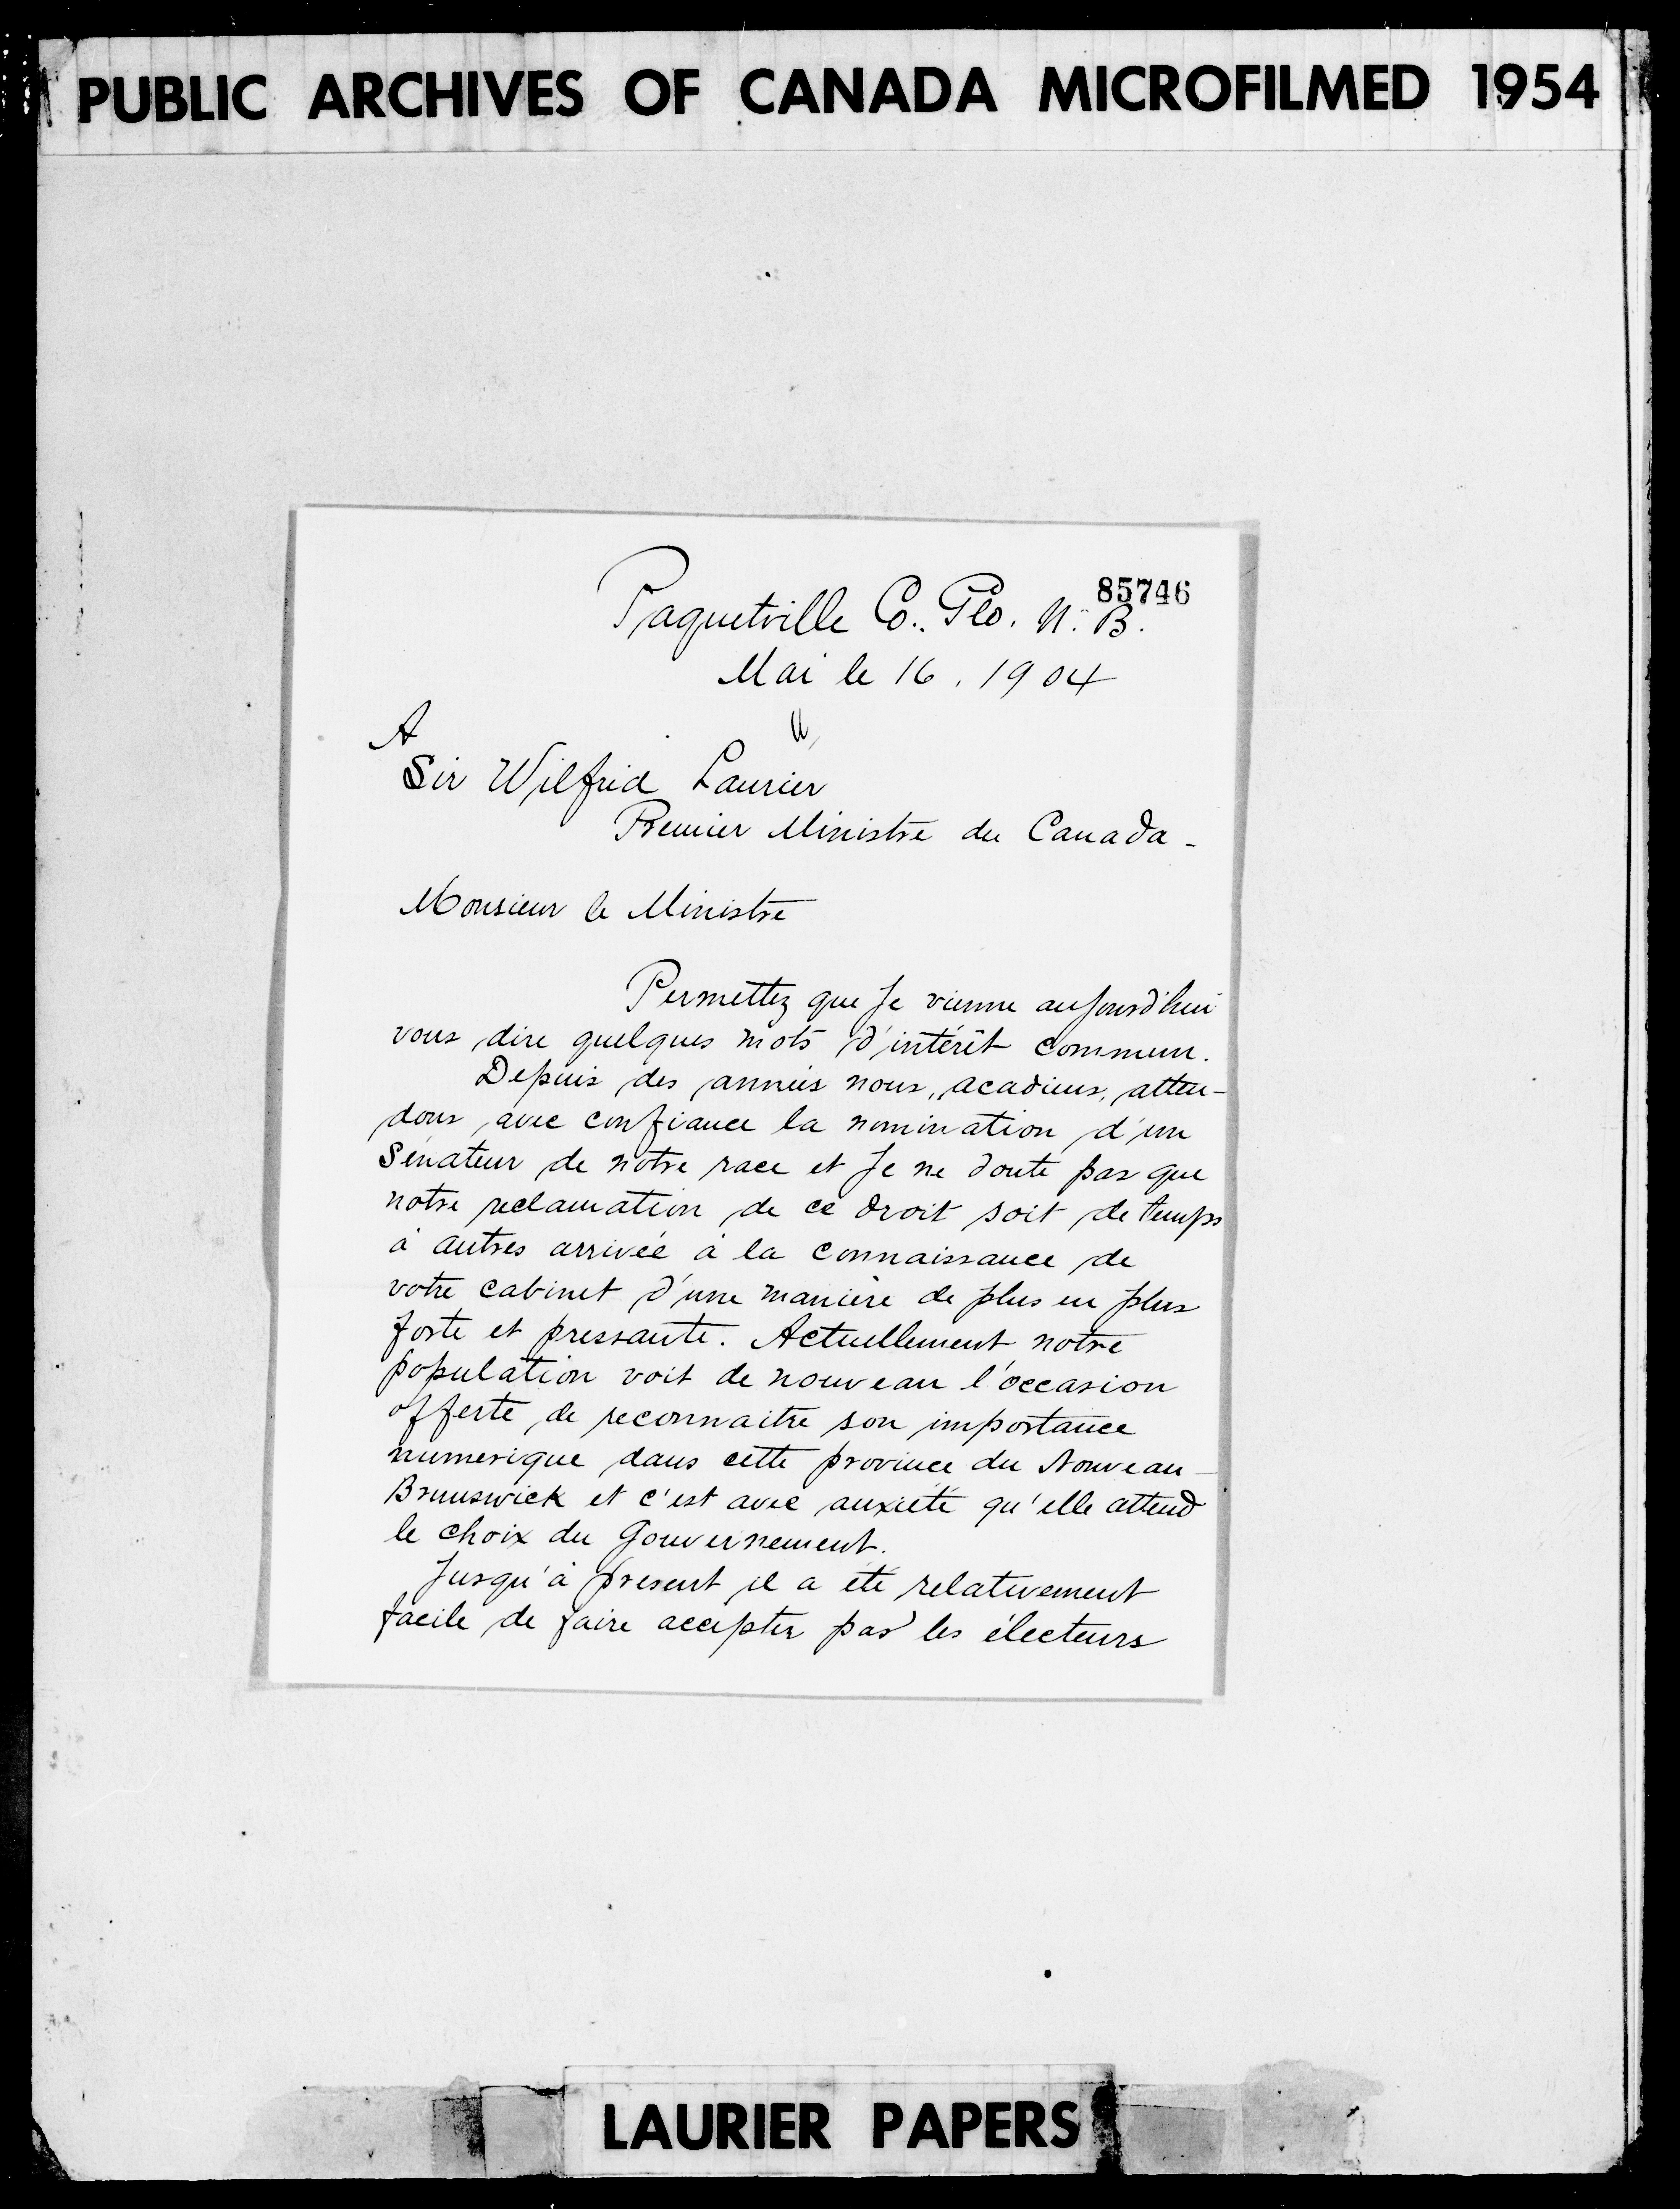 PUBLIC ARCHIVES OF CANADA MICROFILMED 1954
85746
Paquetville Co. Glo. N. B.
Mai le 16. 1904
A
Sir Wilfrid Laurier
Premier Ministre du Canada -
Monsieur le Ministre
Permettez que je vienne aujourd'hui
vous dire quelques mots d'intérêt commun.
Depuis des années nous, acadiens, atten-
dons avec confiance la nomination d'un
Sénateur de notre race et je ne doute pas que
notre reclamation de ce droit soit de temps
à autres arrivée à la connaissance de
votre cabinet d'une manière de plus en plus
forte et pressante. Actuellement notre
population voit de nouveau l'occasion
offerte de reconnaitre son importance
numerique dans cette province du Nouveau-
Brunswick et c'est avec anxiété qu'elle attend
le choix du Gouvernement.
Jusqu'à présent il a été relativement
facile de faire accepter par les électeurs
LAURIER PAPERS